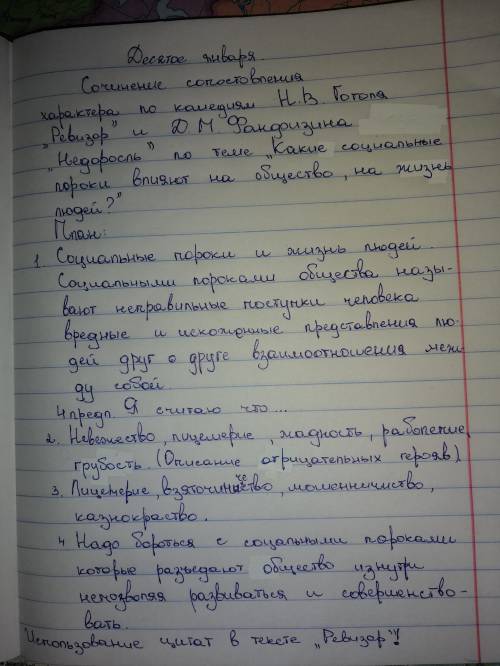 Десятое января
Сочинение сопоставления
характера по камедиям Н.В. Гоголя
"Ревизор" и Д М Фанфизина
"Недоросль" по теме "Какие социальные
пороки влияют на общество, на жизнь
людей?"
План:
1. Социальные пороки и жизнь людей.
Социальными пороками общества назы-
вают неправильные поступки человека
вредные и искожонные представления лю-
дей друг о друге взаимоотношения меж-
ду собой.
4 предл. Я считаю что...
2. Невежество, лицемерие, жадность, раболепие,
грубость. (Описание отрицательных герояв)
3. Лицемерие, взяточничество, мошенничиство,
казнокраство.
4 Надо бороться с соцальными пороками
которые разъедают общество изнутри
непозволяя развиваться и совершенство-
вать.
Использование цитат в тексте "Ревизор"!